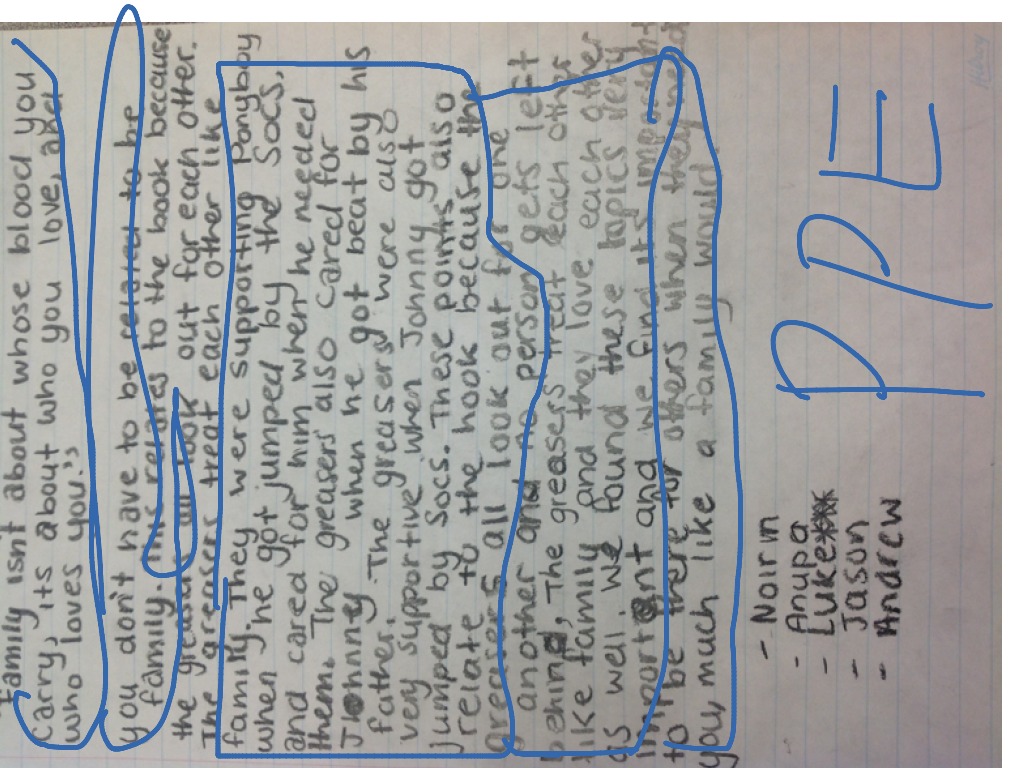 Family isn't about whose blood you
Carry, its about who you love, and
who loves you."
you don't have to be related to be
family. this relates to the book because
the greasers all look out for each other.
The greasers treat each other like
family. They were supporting Ponyboy
when he got jumped by the Socs,
and cared for him when he needed
them. The greasers also cared for
Johnny when he got beat by his
father. The greasers were also
very supportive when Johnny got
jumped by Socs. These points also
relate to the book because the
greasers all look out for one
another and no person gets left
behind. The greasers treat each other
like family and they love each other
as well. we found these topics very
important and we find its important
to be there for others when they need
you, much like a family would.
- Noirin
- Anupa
- Luke
- Jason
- Andrew
PPE